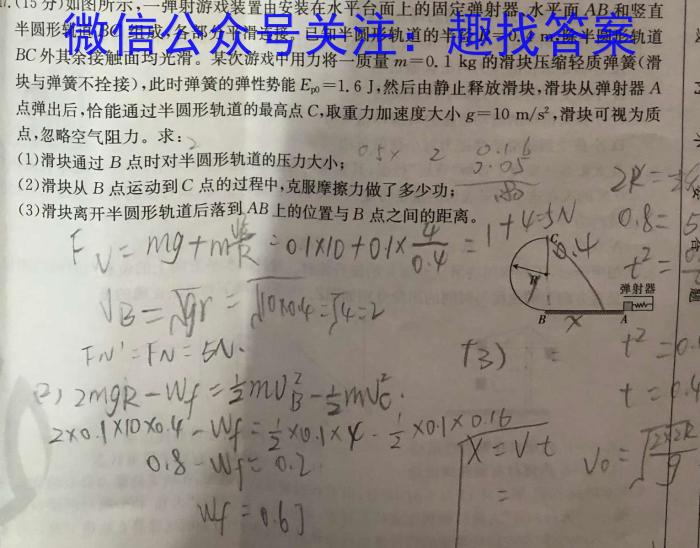 (15 分)如图所示,一弹射游戏装置由安装在水平台面上的固定弹射器、水平面 AB 和竖直
半圆形轨道 BC 组成,各部分平滑连接。已知半圆形轨道的半径
半圆形轨道
微信公众号关注:趣找答案
BC 外其余接触面均光滑。某次游戏中用力将一质量 m=0.1 kg 的滑块压缩轻质弹簧(滑
块与弹簧不拴接),此时弹簧的弹性势能 Ep0=1.6 J,然后由静止释放滑块,滑块从弹射器 A
点弹出后,恰能通过半圆形轨道的最高点 C,取重力加速度大小 g=10 m/s²,滑块可视为质
点,忽略空气阻力。求:
(1)滑块通过 B 点时对半圆形轨道的压力大小;
(2)滑块从 B 点运动到 C 点的过程中,克服摩擦力做了多少功;
(3)滑块离开半圆形轨道后落到 AB 上的位置与 B 点之间的距离。
2
0.16
0.05
2R=
0.8=
t²=
t²=0.
t=0.4
C
0.4
r
弹射器
B
x
A
=0.1×10+0.1×4/0.4=1+4=5N
VB=√gr=√10×0.4=√4=2
FN'=FN=5N.
(2) 2mgR-Wf=½mVB²-½mVC².
2×0.1×10×0.4-Wf=½×0.1×4-½×0.1×0.16
0.8-Wf=0.2
Wf=0.6J
(3)
X=Vt
=
V0=